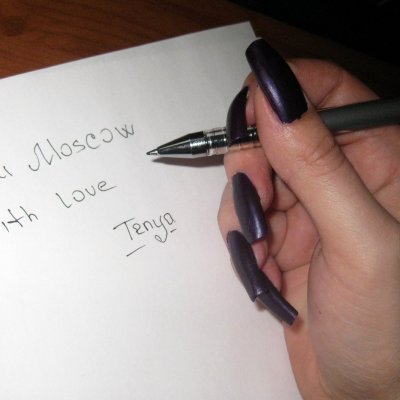 Moscow
ith love
Tanya